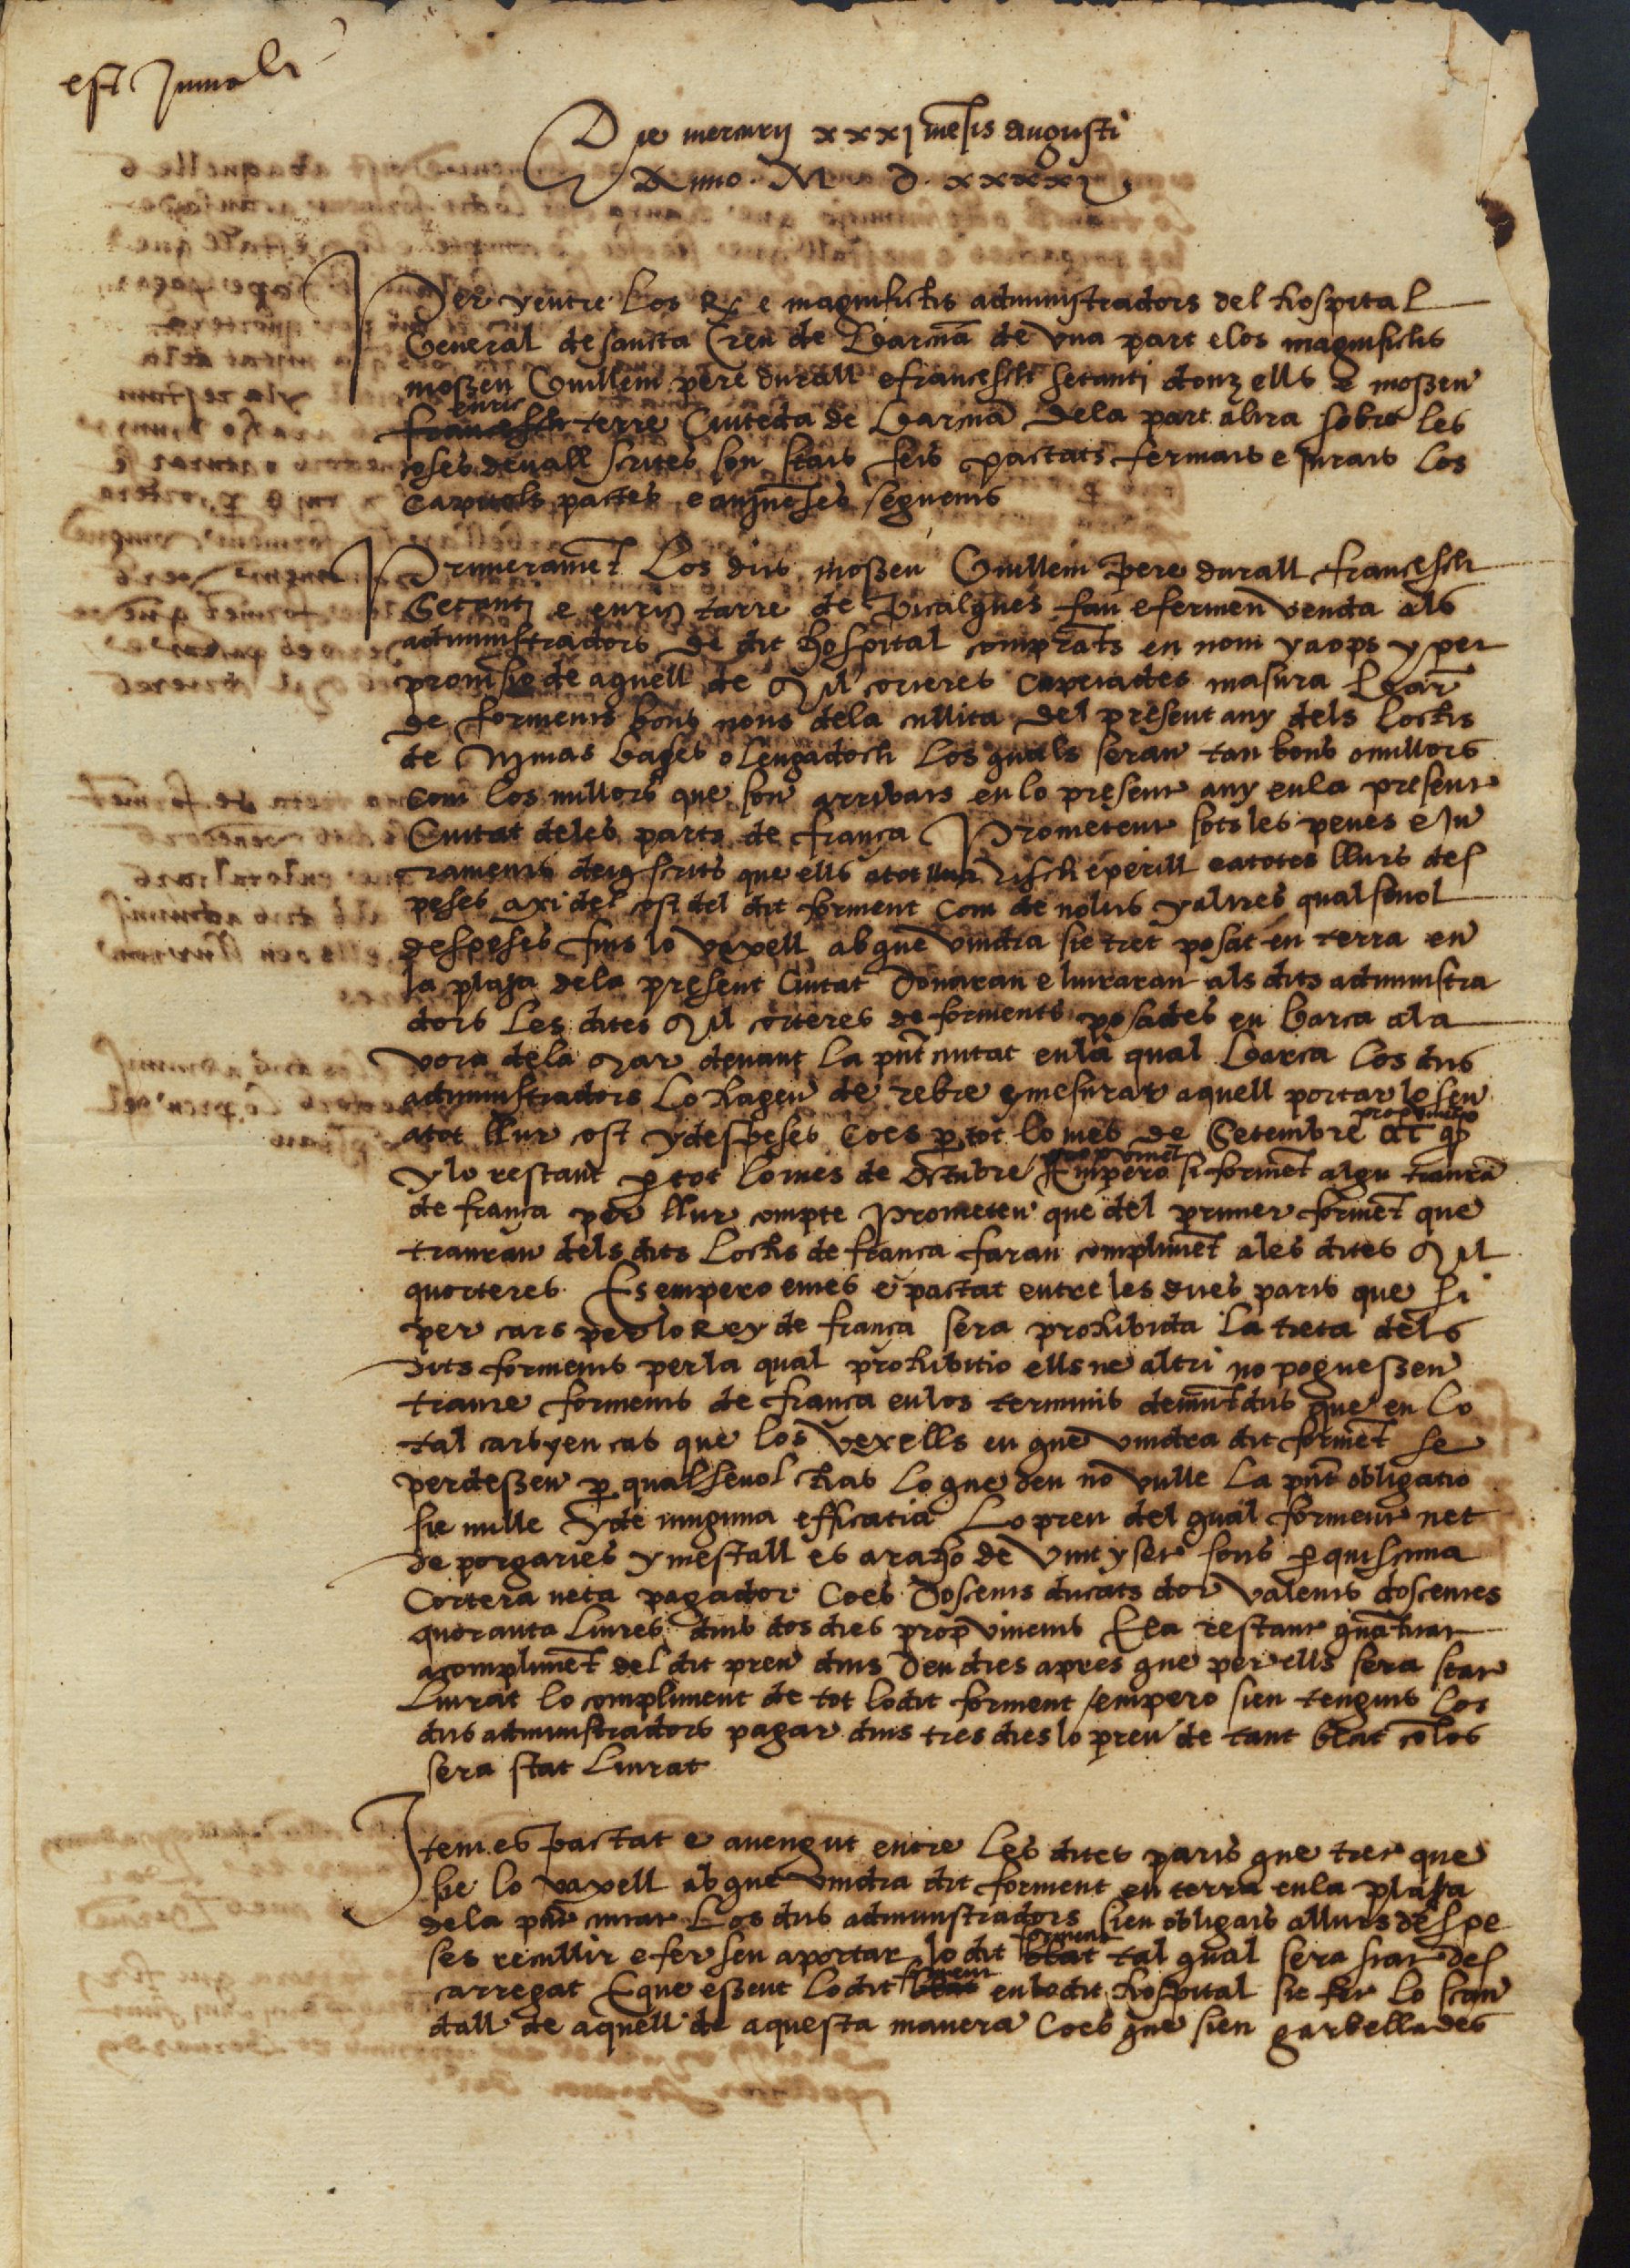 est Inmoli
Die mercurij xxxj mensis augusti
Anno. M D. xxxxj.
Per y entre los Rx e magnifichs administradors del hospital
General de sancta Creu de Barna de vna part e los magnifichs
mossen Guillem pere durall e francesch setanti donzells e mossen
enric
francesch terre Ciuteda de Barna dela part altra sobre les
coses deuall scrites son stats fets pactats fermats e jurats los
Capitols pactes e conjuenses seguents
Primerament los dits mossen Guillem pere durall francesch
Setanti e enrich tarre de Picalques fan e fermen venda als
administradors de dit hospital comprants en nom y a ops y per
promissio de aquell de Mil corteres caxeiades masura Bar
de forments bons nous dela cullita del present any dels lochs
de Nimas bages o lengadoch los quals seran tan bons o millors
com los millors que son arribats en lo present any en la present
Ciutat deles parts de frança Prometent sots les penes e Ju
raments deig scrits que ells a tot llur risch e perill e a totes llurs des
peses axi del cost del dit forment com de nolits y altres qualseuol
despeses fins lo vaxell ab que vindra sie tret posat en terra en
la plaja dela present Ciutat donaran e liuraran als dits administra
dors les dites Mil corteres de forments posades en barca a la
vora dela Mar deuant la pnt ciutat en la qual barca los dits
administradors lo hagen de rebre e mesurar aquell portar lo sen
a tot llur cost y despeses Coes p tot lo mes de Setembre
propvinent
y lo restant p tot lo mes de Octubre Empero si forment algu trauran
de frança per llur compte Prometen que del primer forment que
trauran dels dits lochs de frança faran compliment a les dites Mil
quorteres Es empero emes e pactat entre les dues parts que si
per cars per lo Rey de frança sera prohibida la treta dels
dits forments per la qual prohibitio ells ne altri no poguessen
traure forments de frança en los terminis demunt dits que en lo
tal cars y en cas que los vexells en que vindra dit forment se
perdessen p qualseuol chas lo que deu no vulle la pnt obligatio
sie nulle y de ninguna efficatia Lo preu del qual forment net
de porgaries y mestall es a raho de vint y set sous p quiscuna
Cortera neta pagador Coes Doscents ducats dor valents doscentes
quoranta liures dins dos dies propvinents E la restant quantitat
a compliment del dit preu dins deu dies apres que per ells sera stat
liurat lo compliment de tot lo dit forment / empero sien tenguts los
dits administradors pagar dins tres dies lo preu de tant blat com los
sera stat liurat
Item es pactat e auengut entre les dites parts que tret que
sie lo vaxell ab que vindra dit forment en terra en la plaja
dela pnt ciutat los dits administradors sien obligats a llurs despe
forment
ses recullir e fer sen aportar lo dit blat tal qual sera stat des
forment
carregat E que essent lo dit blat en lo dit hospital sie fet lo scan
dall de aquell de aquesta manera Coes que sien garbellades